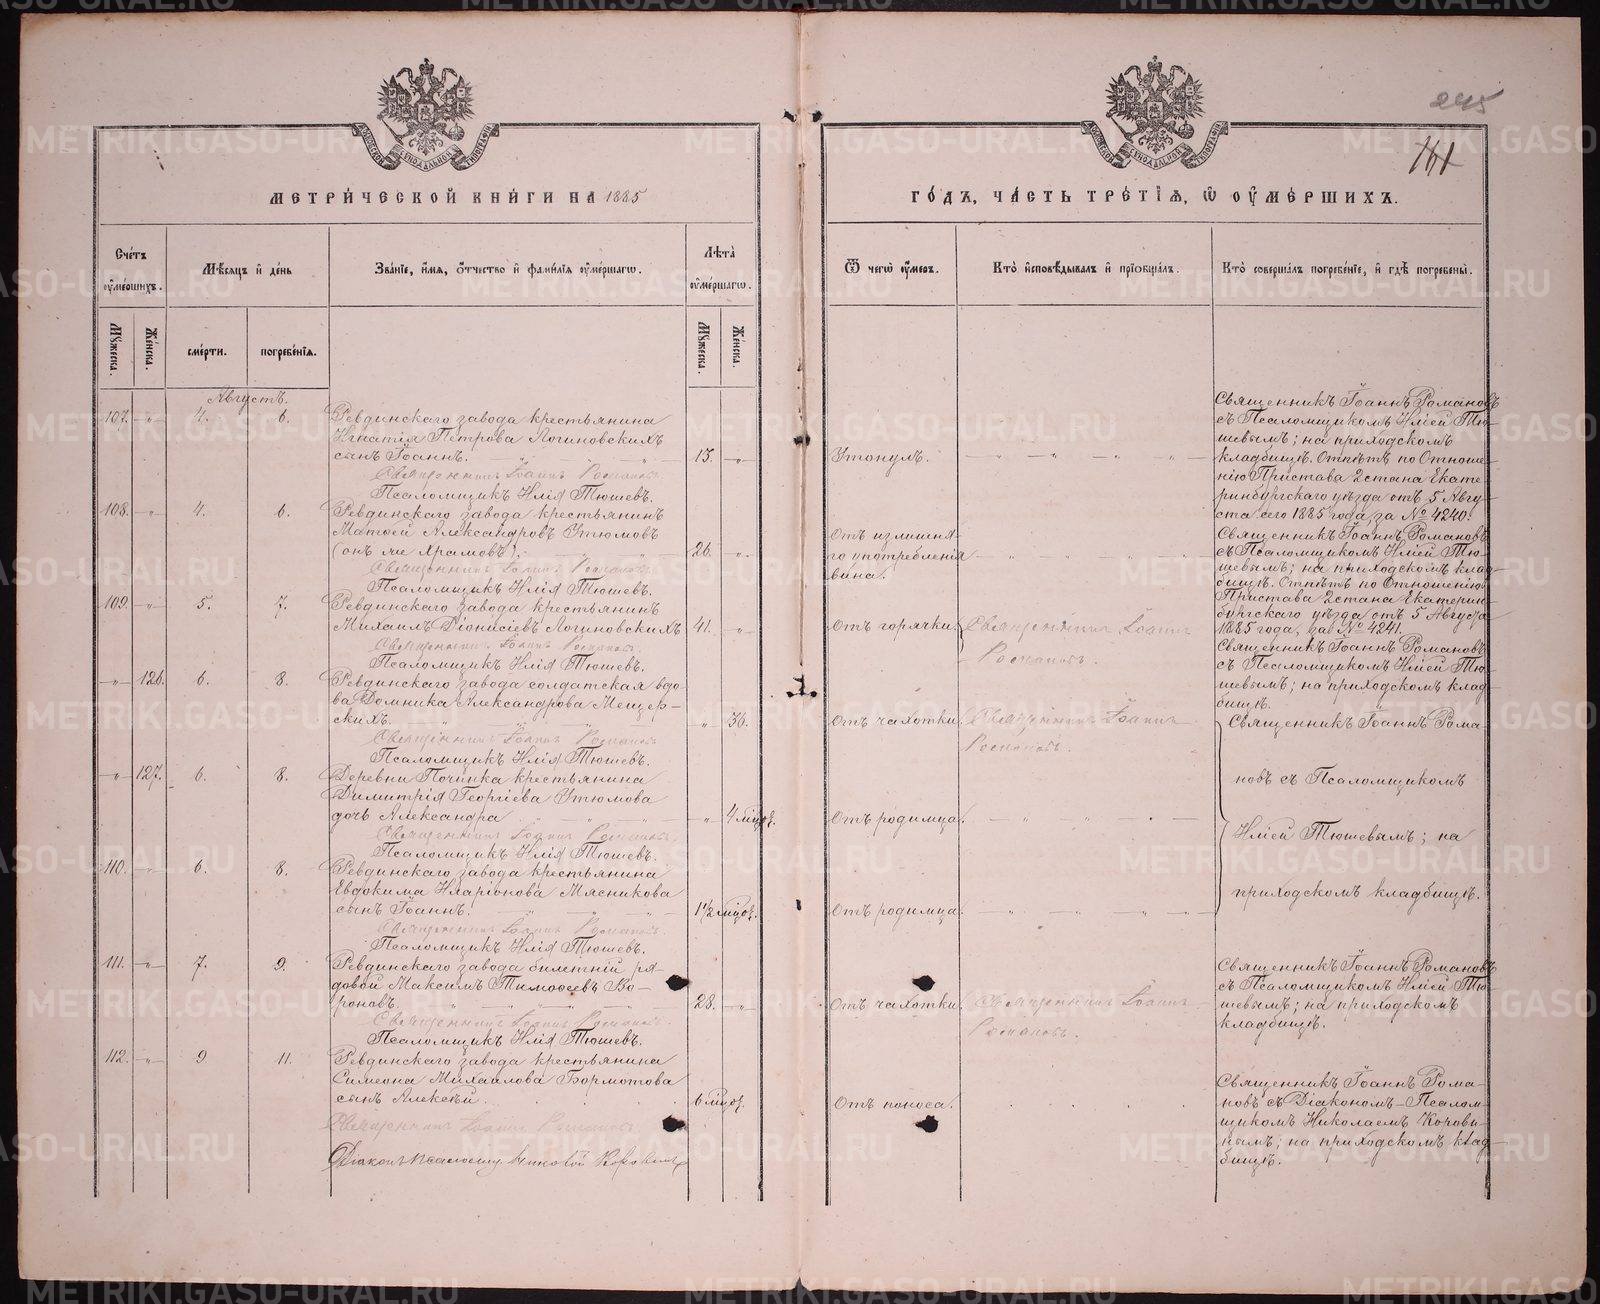 245
161
МЕТРИЧЕСКОЙ КНИГИ НА 1885
ГОДЪ, ЧАСТЬ ТРЕТІЯ, Ѽ ОУМЕРШИХЪ.
Счетъ оумершихъ.
Мѣсяцъ и день
Званіе, имя, отчество и фамилія оумершагѡ.
Лѣта оумершагѡ.
Ѿ чегѡ оумеръ.
Кто исповѣдывалъ и пріобщалъ.
Кто совершалъ погребеніе, и гдѣ погребены.
Мужеска.
Женска.
смерти.
погребенія.
Мужеска.
Женска.
Августъ.
107. -"- 4. 6.
Ревдинскаго завода крестьянина
Игнатія Петрова Логиновскихъ
сынъ Іоаннъ.
13. -"-
Утонулъ.
Священникъ Іоаннъ Романовъ
съ Псаломщикомъ Иліей Тю-
шевымъ; на приходскомъ
кладбищѣ. Отпѣтъ по Отноше-
нію Пристава 2 стана Екате-
ринбургскаго уѣзда отъ 5 Авгу-
ста сего 1885 года, за № 4240.
Священникъ Іоаннъ Романовъ.
Псаломщикъ Илія Тюшевъ.
108. -"- 4. 6.
Ревдинскаго завода крестьянинъ
Матѳей Александровъ Утюмовъ
(онъ же Храмовъ).
26. -"-
Отъ излишня-
го употребленія
вина.
Священникъ Іоаннъ Романовъ
съ Псаломщикомъ Иліей Тю-
шевымъ; на приходскомъ клад-
бищѣ. Отпѣтъ по Отношенію
Пристава 2 стана Екатерин-
бургскаго уѣзда отъ 5 Августа
1885 года, за № 4241.
Священникъ Іоаннъ Романовъ.
Псаломщикъ Илія Тюшевъ.
109. -"- 5. 7.
Ревдинскаго завода крестьянинъ
Михаилъ Діонисіевъ Логиновскихъ
41. -"-
Отъ горячки.
Священникъ Іоаннъ
Романовъ.
Священникъ Іоаннъ Романовъ
съ Псаломщикомъ Иліей Тю-
шевымъ; на приходскомъ клад-
бищѣ.
Священникъ Іоаннъ Романовъ.
Псаломщикъ Илія Тюшевъ.
-"- 126. 6. 8.
Ревдинскаго завода солдатская вдо-
ва Домника Александрова Мещер-
скихъ.
" 36.
Отъ чахотки.
Священникъ Іоаннъ
Романовъ.
Священникъ Іоаннъ Рома-
новъ съ Псаломщикомъ
Иліей Тюшевымъ; на
приходскомъ кладбищѣ.
Священникъ Іоаннъ Романовъ.
Псаломщикъ Илія Тюшевъ.
-"- 127. 6. 8.
Деревни Починка крестьянина
Димитрія Георгіева Утюмова
дочь Александра
" 4 мѣцов.
Отъ родимца.
Священникъ Іоаннъ Романовъ.
Псаломщикъ Илія Тюшевъ.
110. -"- 6. 8.
Ревдинскаго завода крестьянина
Евдокима Иларіонова Мясникова
сынъ Іоаннъ.
1 1/2 мѣцов.
Отъ родимца.
Священникъ Іоаннъ Романовъ.
Псаломщикъ Илія Тюшевъ.
111. -"- 7. 9.
Ревдинскаго завода билетній ря-
довой Максимъ Тимоѳеевъ Во-
роновъ.
28. -"-
Отъ чахотки.
Священникъ Іоаннъ
Романовъ.
Священникъ Іоаннъ Романовъ
съ Псаломщикомъ Иліей Тю-
шевымъ; на приходскомъ
кладбищѣ.
Священникъ Іоаннъ Романовъ.
Псаломщикъ Илія Тюшевъ.
112. -"- 9. 11.
Ревдинскаго завода крестьянина
Симеона Михаилова Бормотова
сынъ Алексѣй.
6 мѣцов.
Отъ поноса.
Священникъ Іоаннъ Рома-
новъ съ Діакономъ-Псалом-
щикомъ Николаемъ Корови-
нымъ; на приходскомъ клад-
бищѣ.
Священникъ Іоаннъ Романовъ.
METRIKI.GASO-URAL.RU